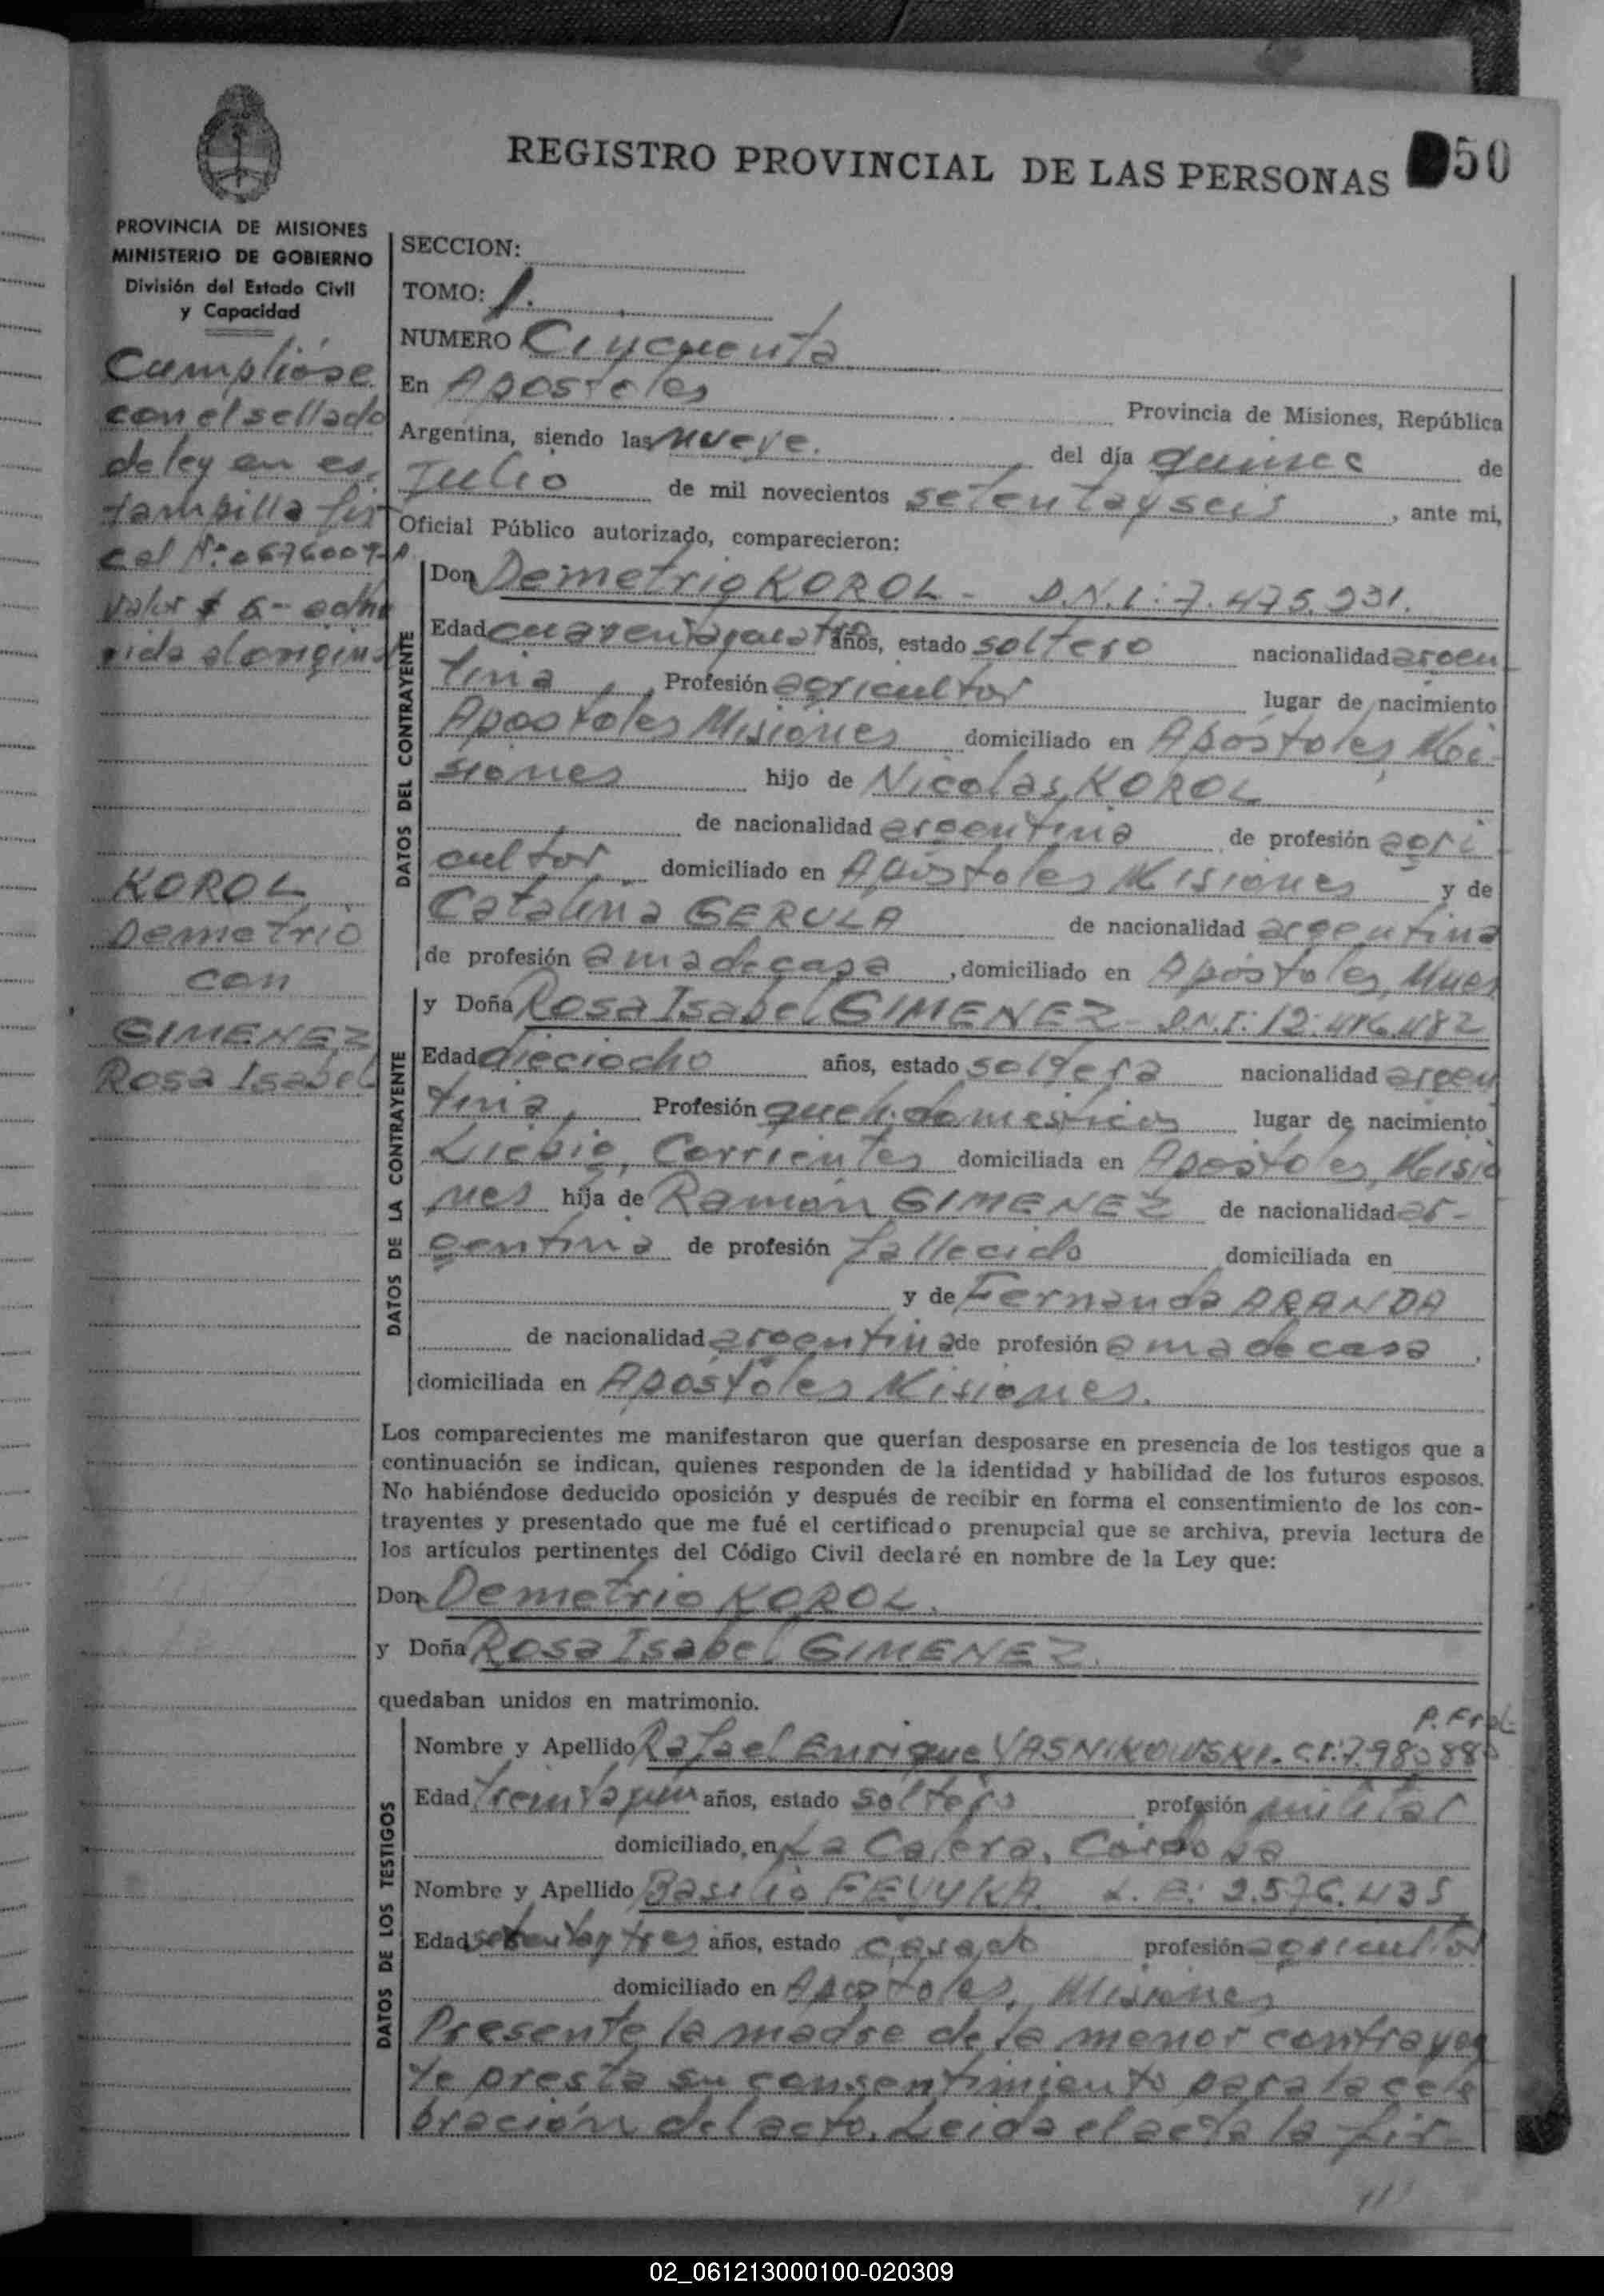 REGISTRO PROVINCIAL DE LAS PERSONAS 50
PROVINCIA DE MISIONES
MINISTERIO DE GOBIERNO
División del Estado Civil
y Capacidad
Cumplióse
con el sellado
de ley en es
tampilla fis
cal Nº 0676009-A
valor $ 6- adhe
rida al original
KOROL
Demetrio
con
GIMENEZ
Rosa Isabel
SECCION:
TOMO: 1.
NUMERO Cincuenta
En Apostoles Provincia de Misiones, República
Argentina, siendo las nueve. del día quince de
Julio de mil novecientos setentayseis, ante mi,
Oficial Público autorizado, comparecieron:
DATOS DEL CONTRAYENTE
Don Demetrio KOROL - D.N.I: 7.475.931.
Edad cuarentaycuatro años, estado soltero nacionalidad argen
tina, Profesión agricultor lugar de nacimiento
Apostoles Misiones domiciliado en Apóstoles, Mi-
siones hijo de Nicolas KOROL
de nacionalidad argentina de profesión agri-
cultor domiciliado en Apóstoles Misiones y de
Catalina GERULA de nacionalidad argentina
de profesión ama de casa, domiciliado en Apóstoles, Mnes
DATOS DE LA CONTRAYENTE
y Doña Rosa Isabel GIMENEZ - DN.I: 12.416.482
Edad dieciocho años, estado soltera nacionalidad argen
tina, Profesión queh. domésticos lugar de nacimiento
Liebig, Corrientes domiciliada en Apóstoles, Misio
nes hija de Ramón GIMENEZ de nacionalidad ar-
gentina de profesión fallecido domiciliada en
y de Fernanda ARANDA
de nacionalidad argentina de profesión ama de casa,
domiciliada en Apóstoles Misiones.
Los comparecientes me manifestaron que querían desposarse en presencia de los testigos que a
continuación se indican, quienes responden de la identidad y habilidad de los futuros esposos.
No habiéndose deducido oposición y después de recibir en forma el consentimiento de los con-
trayentes y presentado que me fué el certificado prenupcial que se archiva, previa lectura de
los artículos pertinentes del Código Civil declaré en nombre de la Ley que:
Don Demetrio KOROL.
y Doña Rosa Isabel GIMENEZ.
quedaban unidos en matrimonio.
DATOS DE LOS TESTIGOS
P. Fral
Nombre y Apellido Rafael Enrique YASNIKOWSKI - C.I: 7.980.880
Edad treintayún años, estado soltero profesión militar
domiciliado, en La Calera, Córdoba
Nombre y Apellido Basilio FEVYKA L. E: 2.576.435
Edad setentaytres años, estado casado profesión agricultor
domiciliado en Apostoles, Misiones
Presente la madre de la menor contrayen
te presta su consentimiento para la cele
bración del acto. Leida el acta la fir-
02_061213000100-020309